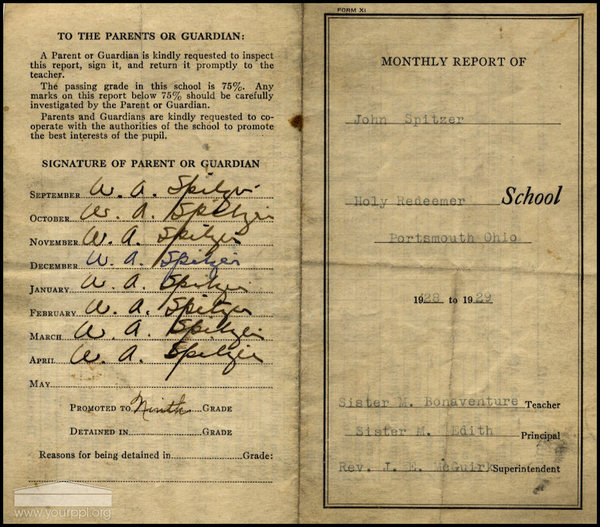 TO THE PARENTS OR GUARDIAN:
A Parent or Guardian is kindly requested to inspect
this report, sign it, and return it promptly to the
teacher.
The passing grade in this school is 75%. Any
marks on this report below 75% should be carefully
investigated by the Parent or Guardian.
Parents and Guardians are kindly requested to co-
operate with the authorities of the school to promote
the best interests of the pupil.
SIGNATURE OF PARENT OR GUARDIAN
SEPTEMBER W. A. Spitzer
OCTOBER W. A. Spitzer
NOVEMBER W. A. Spitzer
DECEMBER W. A. Spitzer
JANUARY W. A. Spitzer
FEBRUARY W. A. Spitzer
MARCH W. A. Spitzer
APRIL W. A. Spitzer
MAY
PROMOTED TO Ninth GRADE
DETAINED IN GRADE
Reasons for being detained in Grade:
www.yourppl.org
FORM X
MONTHLY REPORT OF
John Spitzer
Holy Redeemer School
Portsmouth Ohio
1928 to 1929
Sister M. Bonaventure Teacher
Sister M. Edith Principal
Rev. J. E. McGuirk Superintendent